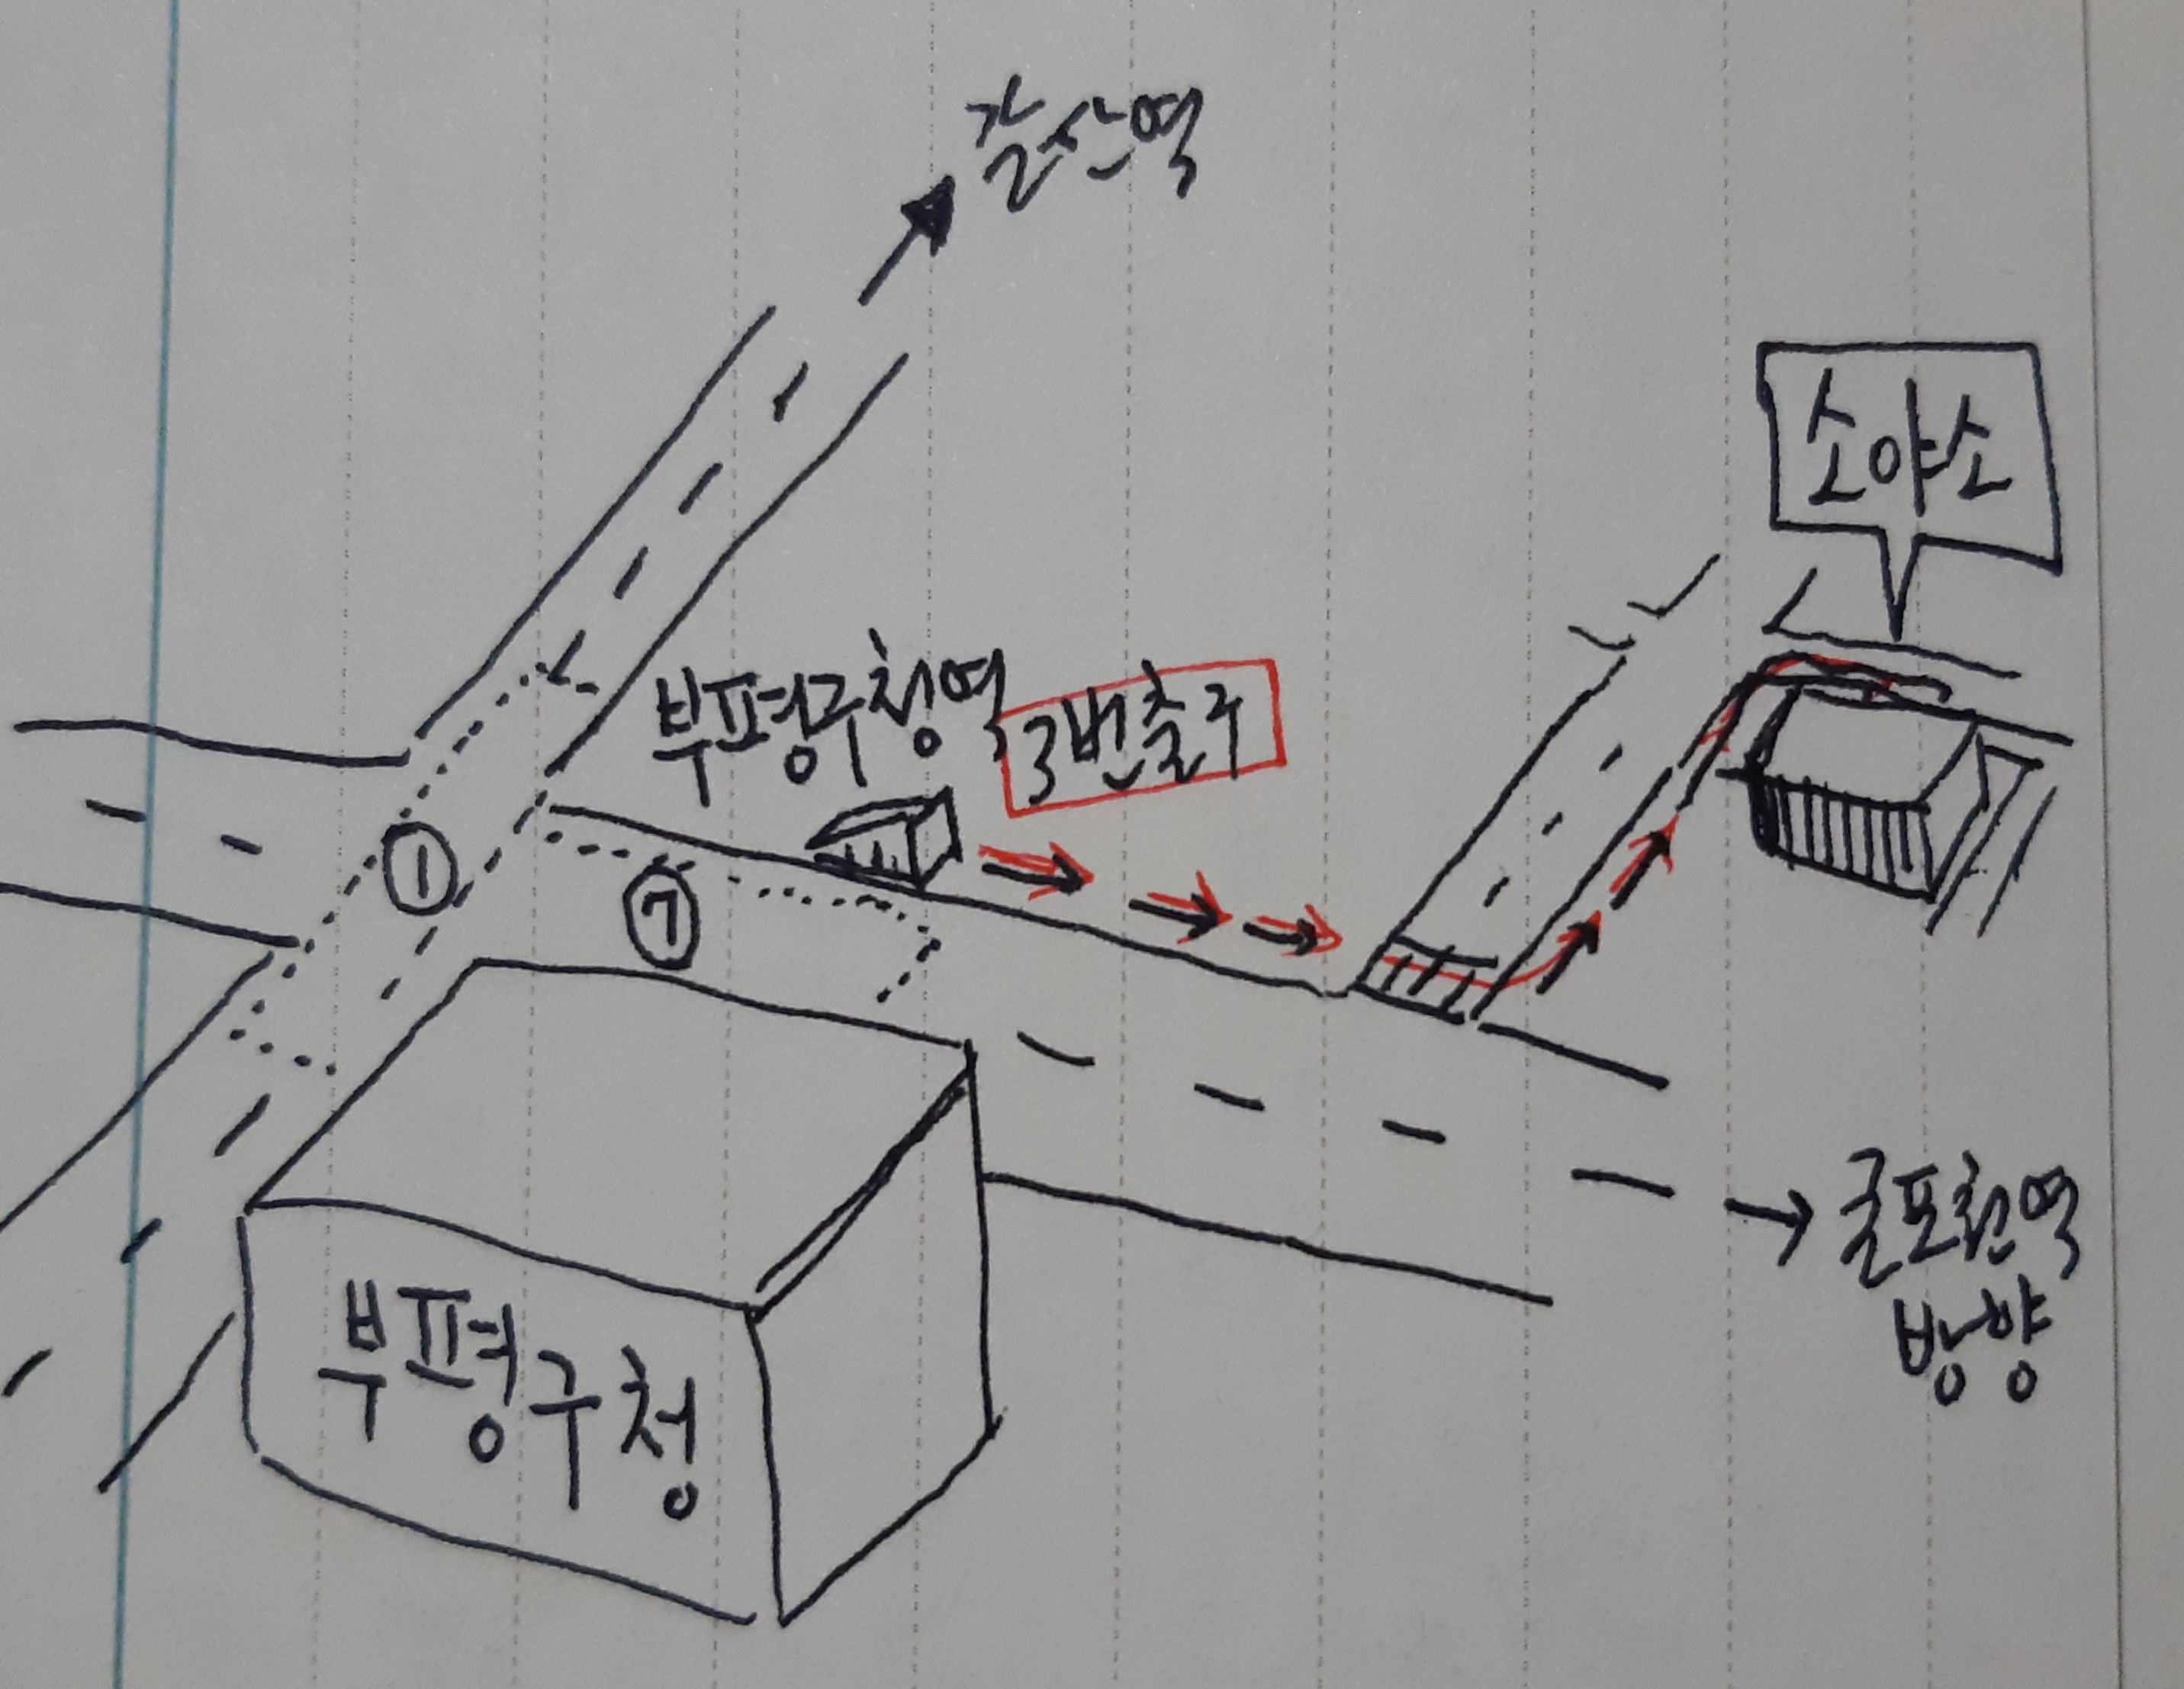 갈산역
소야소
부평구청역 3번출구
①
⑦
굴포천역
방향
부평구청